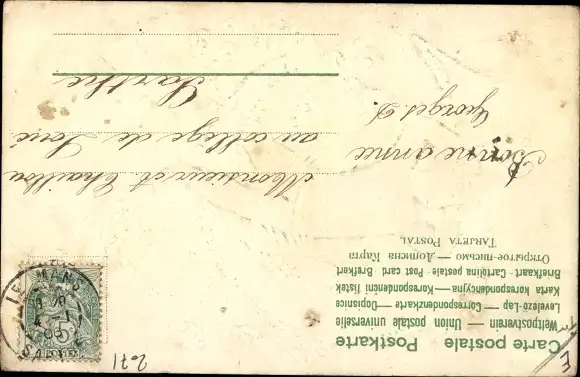 Carte postale Postkarte
Weltpostverein — Union postale universelle
Levelező-Lap — Correspondenzkarte — Dopisnice
Karta korespondencyjna — Korespondenční lístek
Briefkaart Cartolina postale Post card Brefkort
Открытое письмо — Дописна Карта
TARJETA POSTAL
Bonne année
Georges D.
Monsieur et Chaillou
au collège de Loué
Sarthe
LE MANS
SARTHE
POSTES
2671
E